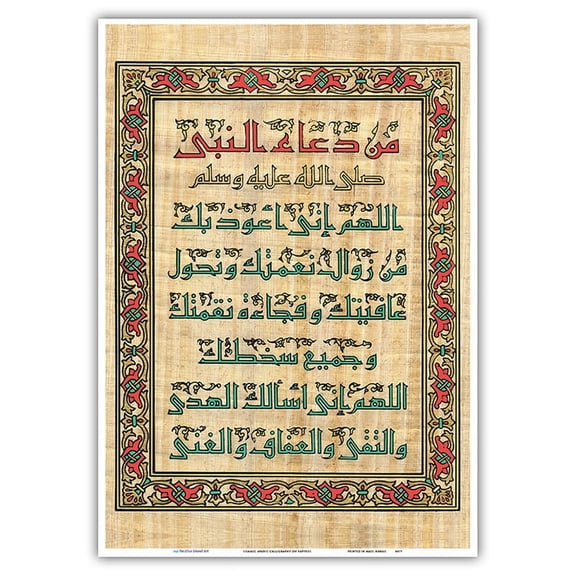 من دعاء النبى
صلى الله عليه وسلم
اللهم إنى أعوذ بك
من زوال نعمتك وتحول
عافيتك و فجاءة نقمتك
و جميع سخطك
اللهم إنى أسألك الهدى
والتقى والعفاف والغنى
ISLAMIC ARABIC CALLIGRAPHY ON PAPYRUS